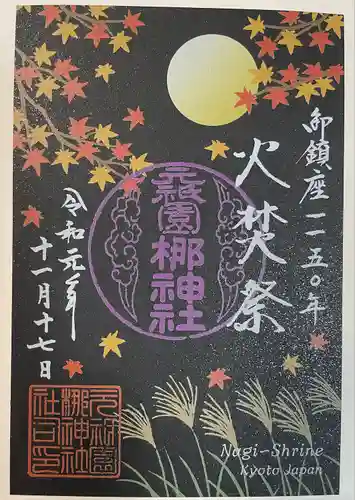 御鎖座一一五〇年
火焚祭
元祇園
梛神社
令和元年
十一月十七日
元祇園
梛神社
之印
Nagi-Shrine
Kyoto Japan